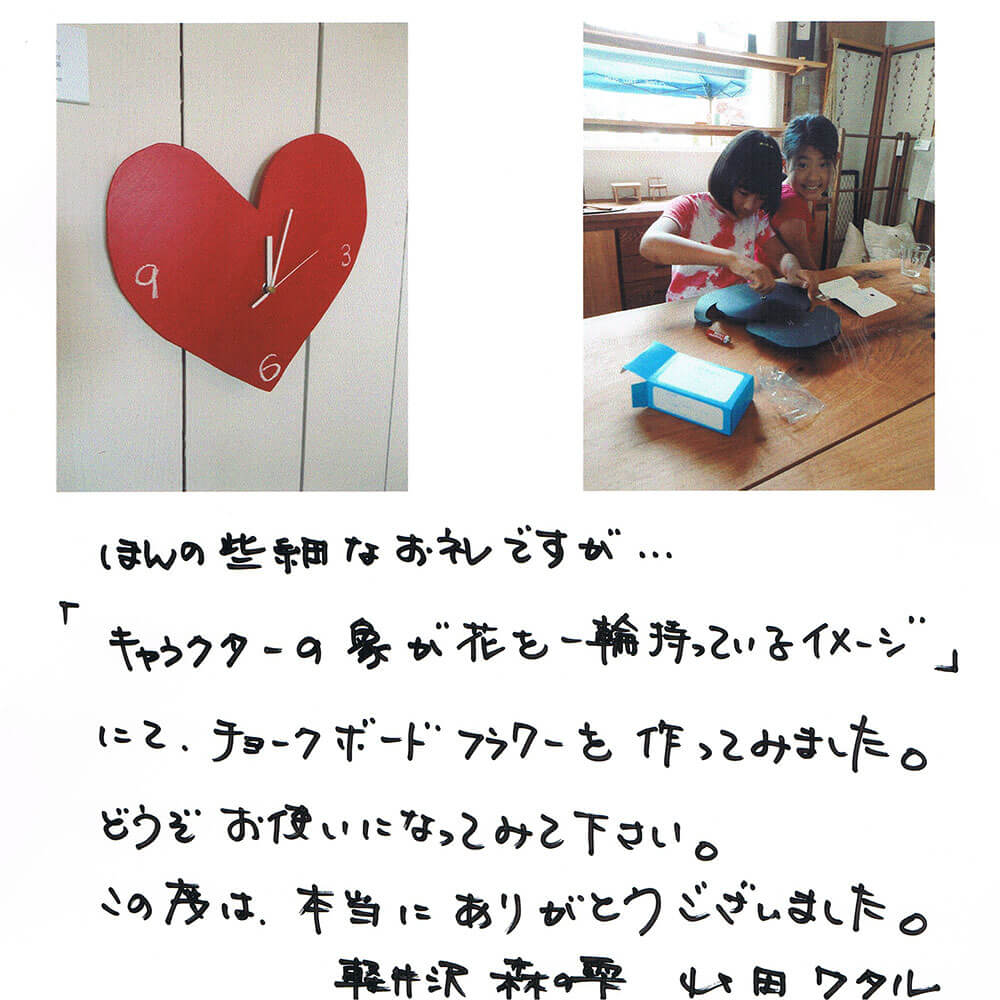 9
3
6
ほんの些細なお礼ですが…
「キャラクターの象が花を一輪持っているイメージ」
にて、チョークボードフラワーを作ってみました。
どうぞお使いになってみて下さい。
この度は、本当にありがとうございました。
軽井沢 森の雫 山田ワタル